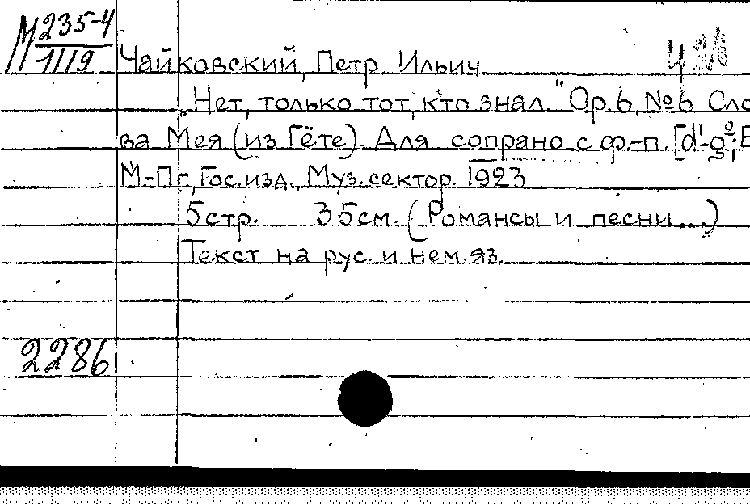 М 235-4
1119
Чайковский, Петр Ильич
„Нет, только тот, кто знал." Ор.6, №6 Сло
ва Мея (из Гёте). Для сопрано с ф.-п. [d¹-g²;
М-Пг, Гос.изд., Муз.сектор. 1923
5стр. 35см. (Романсы и песни...)
Текст на рус. и нем.яз.
2286